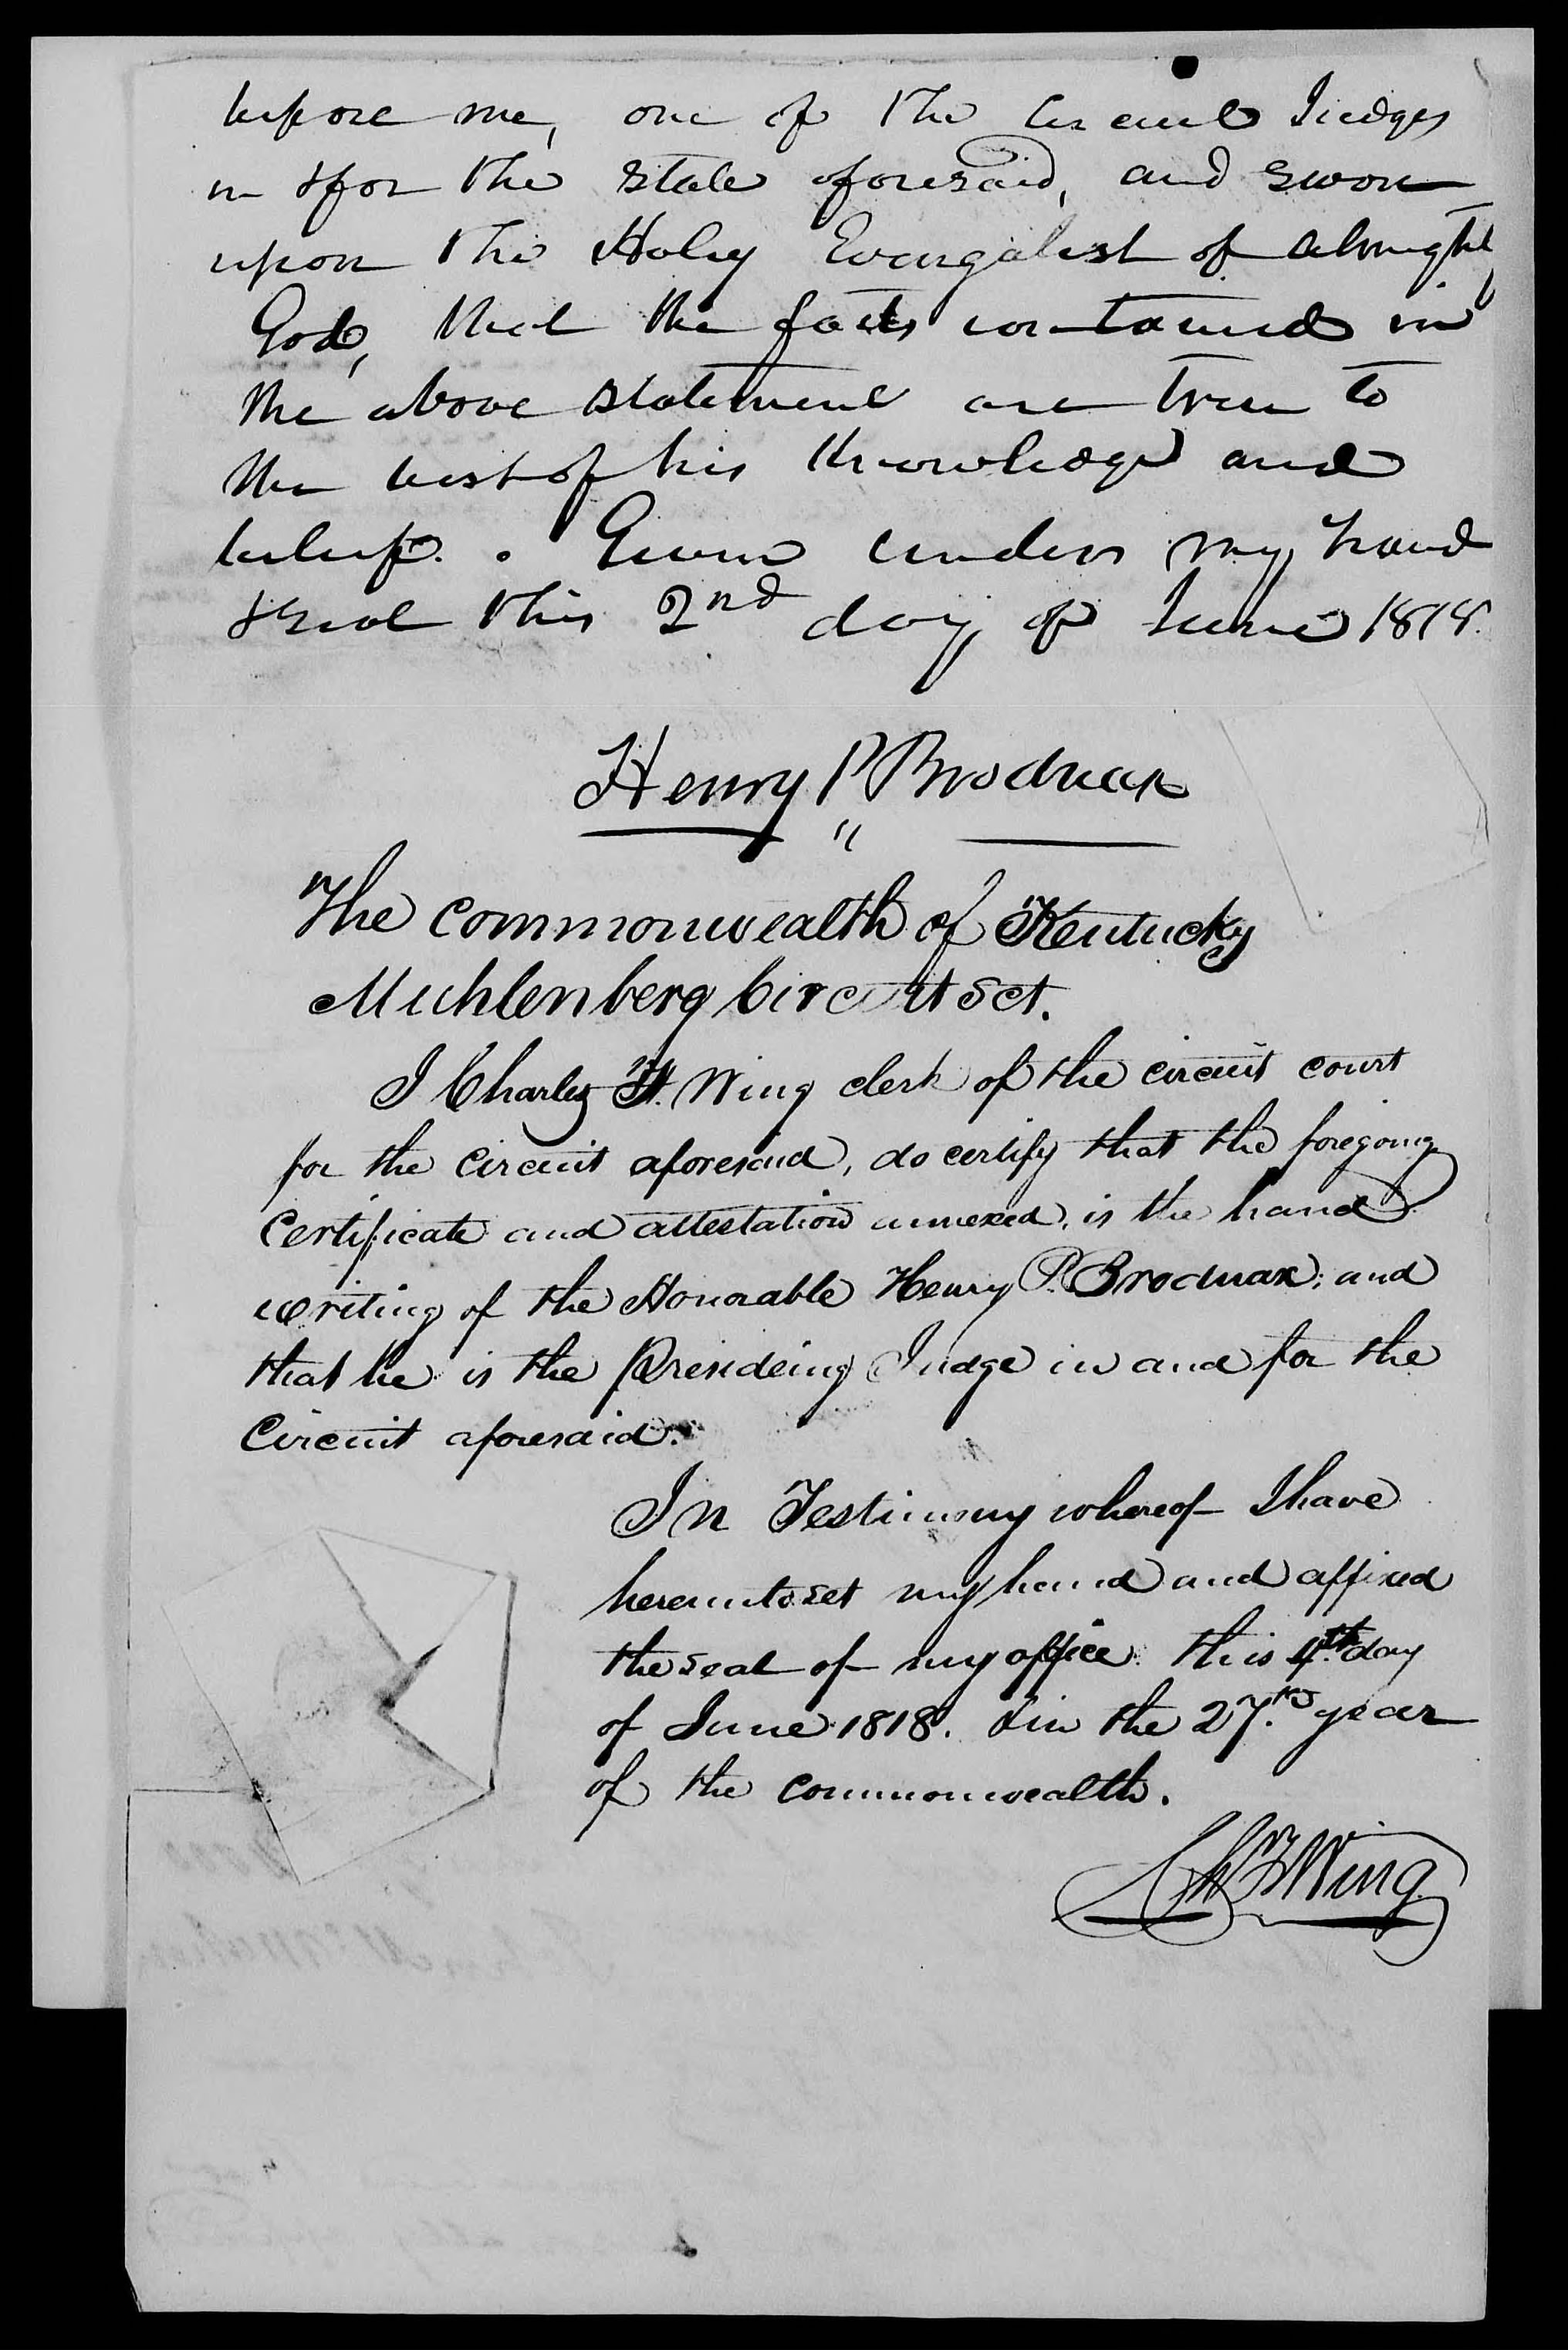 before me, one of the Circuit Judges
in & for the State aforesaid, and sworn
upon the Holy Evangalist of Almighty
God, that the facts contained in
the above statement are true to
the best of his knowledge and
beleif. Given under my hand
& seal this 2nd day of June 1818.
Henry P Brodnax
The Commonwealth of Kentucky
Muhlenberg Circuit Sct.
I Charles F. Wing clerk of the circuit court
for the circuit aforesaid, do certify that the foregoing
Certificate and attestation annexed, is the hand
writing of the Honorable Henry P. Brodnax; and
that he is the Presideing Judge in and for the
Circuit aforesaid.
In Testimony whereof I have
hereunto set my hand and affixed
the seal of my office this 4th day
of June 1818. & in the 27th year
of the commonwealth.
Ch F Wing